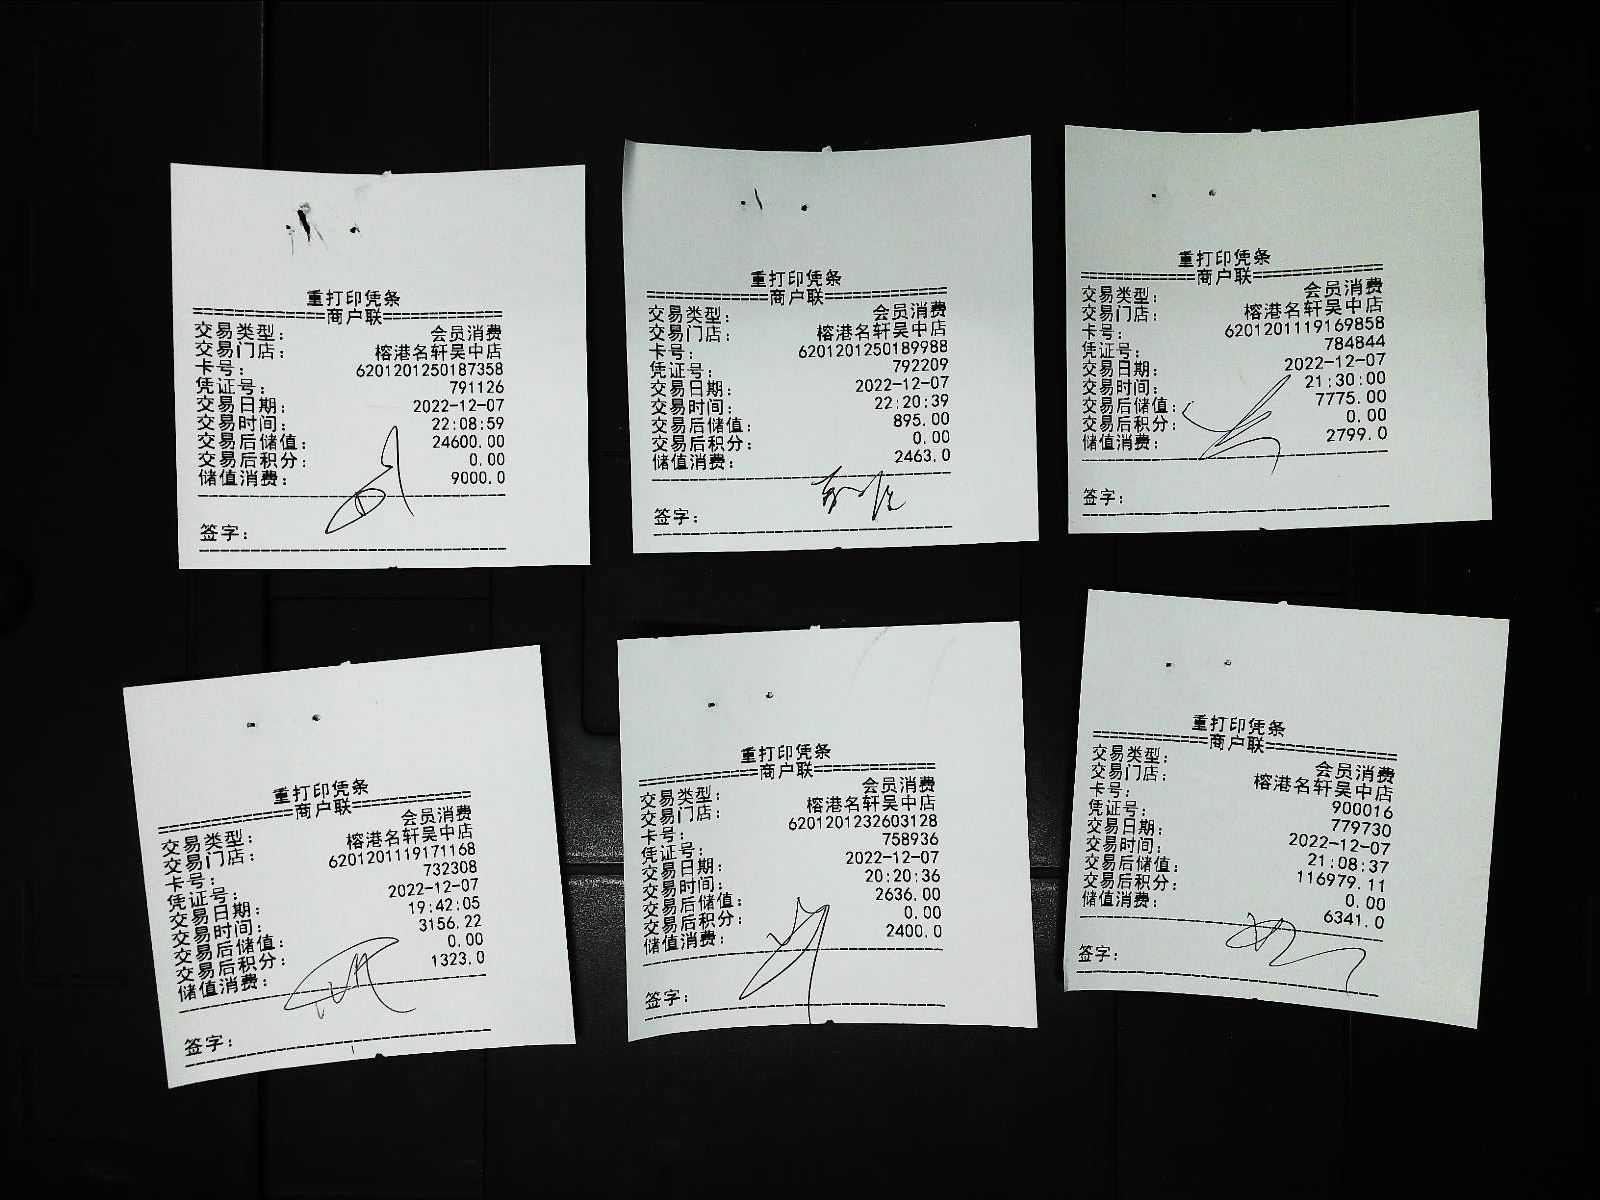 重打印凭条
===============商户联===============
交易类型: 会员消费
交易门店: 榕港名轩吴中店
卡号: 6201201250187358
凭证号: 791126
交易日期: 2022-12-07
交易时间: 22:08:59
交易后储值: 24600.00
交易后积分: 0.00
储值消费: 9000.0
签字:
重打印凭条
===============商户联===============
交易类型: 会员消费
交易门店: 榕港名轩吴中店
卡号: 6201201250189988
凭证号: 792209
交易日期: 2022-12-07
交易时间: 22:20:39
交易后储值: 895.00
交易后积分: 0.00
储值消费: 2463.0
签字:
重打印凭条
===============商户联===============
交易类型: 会员消费
交易门店: 榕港名轩吴中店
卡号: 6201201119169858
凭证号: 784844
交易日期: 2022-12-07
交易时间: 21:30:00
交易后储值: 7775.00
交易后积分: 0.00
储值消费: 2799.0
签字:
重打印凭条
===============商户联===============
交易类型: 会员消费
交易门店: 榕港名轩吴中店
卡号: 6201201119171168
凭证号: 732308
交易日期: 2022-12-07
交易时间: 19:42:05
交易后储值: 3156.22
交易后积分: 0.00
储值消费: 1323.0
签字:
重打印凭条
===============商户联===============
交易类型: 会员消费
交易门店: 榕港名轩吴中店
卡号: 6201201232603128
凭证号: 758936
交易日期: 2022-12-07
交易时间: 20:20:36
交易后储值: 2636.00
交易后积分: 0.00
储值消费: 2400.0
签字:
重打印凭条
===============商户联===============
交易类型: 会员消费
交易门店: 榕港名轩吴中店
卡号: 900016
凭证号: 779730
交易日期: 2022-12-07
交易时间: 21:08:37
交易后储值: 116979.11
交易后积分: 0.00
储值消费: 6341.0
签字: